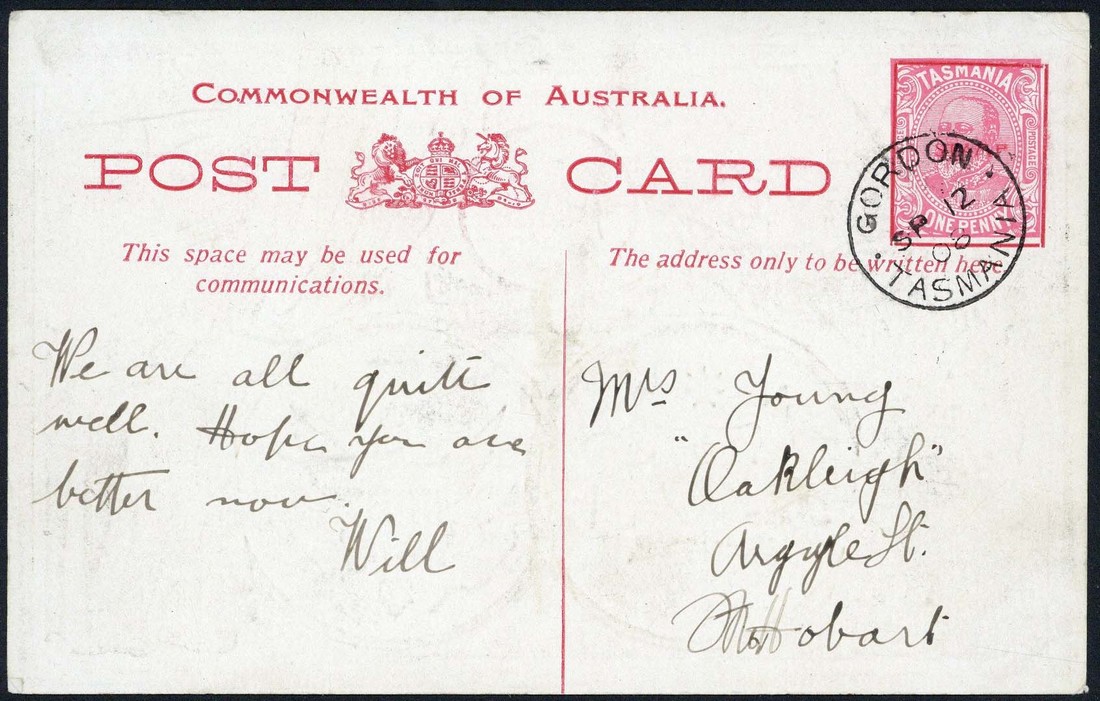 COMMONWEALTH OF AUSTRALIA.
POST CARD
TASMANIA
POSTAGE
ONE PENNY
GORDON
SP 12
08
TASMANIA
This space may be used for
communications.
The address only to be written here.
We are all quite
well. Hope you are
better now.
Will
Mrs Young
"Oakleigh"
Argyle St.
Hobart